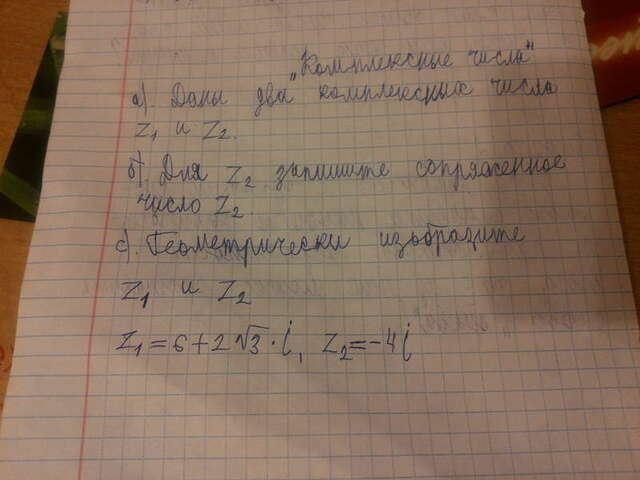 „Комплексные числа"
а). Даны два комплексных числа
Z₁ и Z₂.
б). Для Z₂ запишите сопряженное
число Z₂
с). Геометрически изобразите
Z₁ и Z₂
Z₁ = 6 + 2√3 · i, Z₂ = -4i